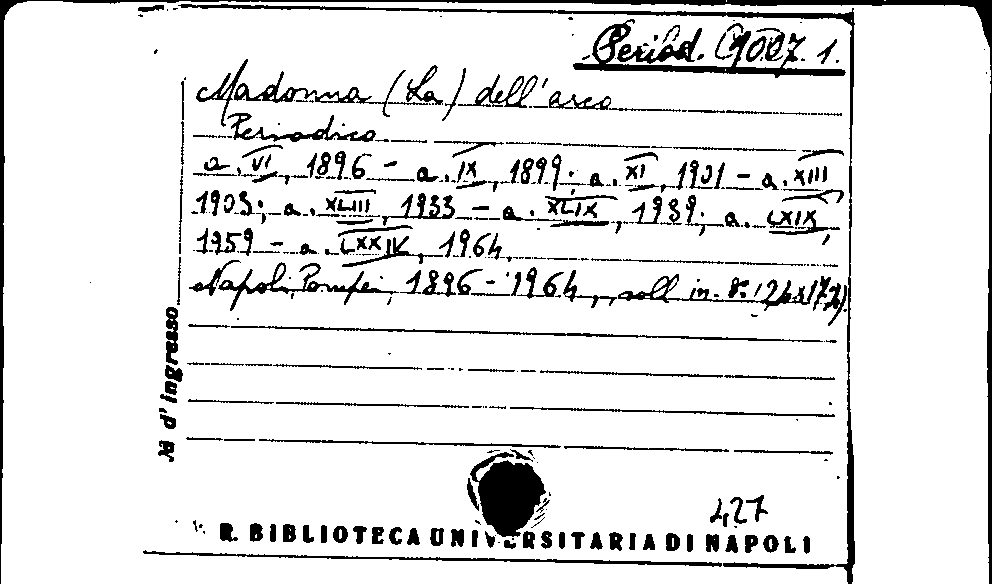 Period. 1.
Madonna (La) dell'arco
Periodico
a. VI, 1896 - a. IX, 1899; a. XI, 1901 - a. XIII
1903; a. XLIII, 1933 - a. XLIX, 1939; a. LXIX,
1959 - a. LXXIV, 1964.
Napoli, Pompei, 1896 - 1964, voll in-8°
№ d'ingresso
427
R. BIBLIOTECA UNIVERSITARIA DI NAPOLI